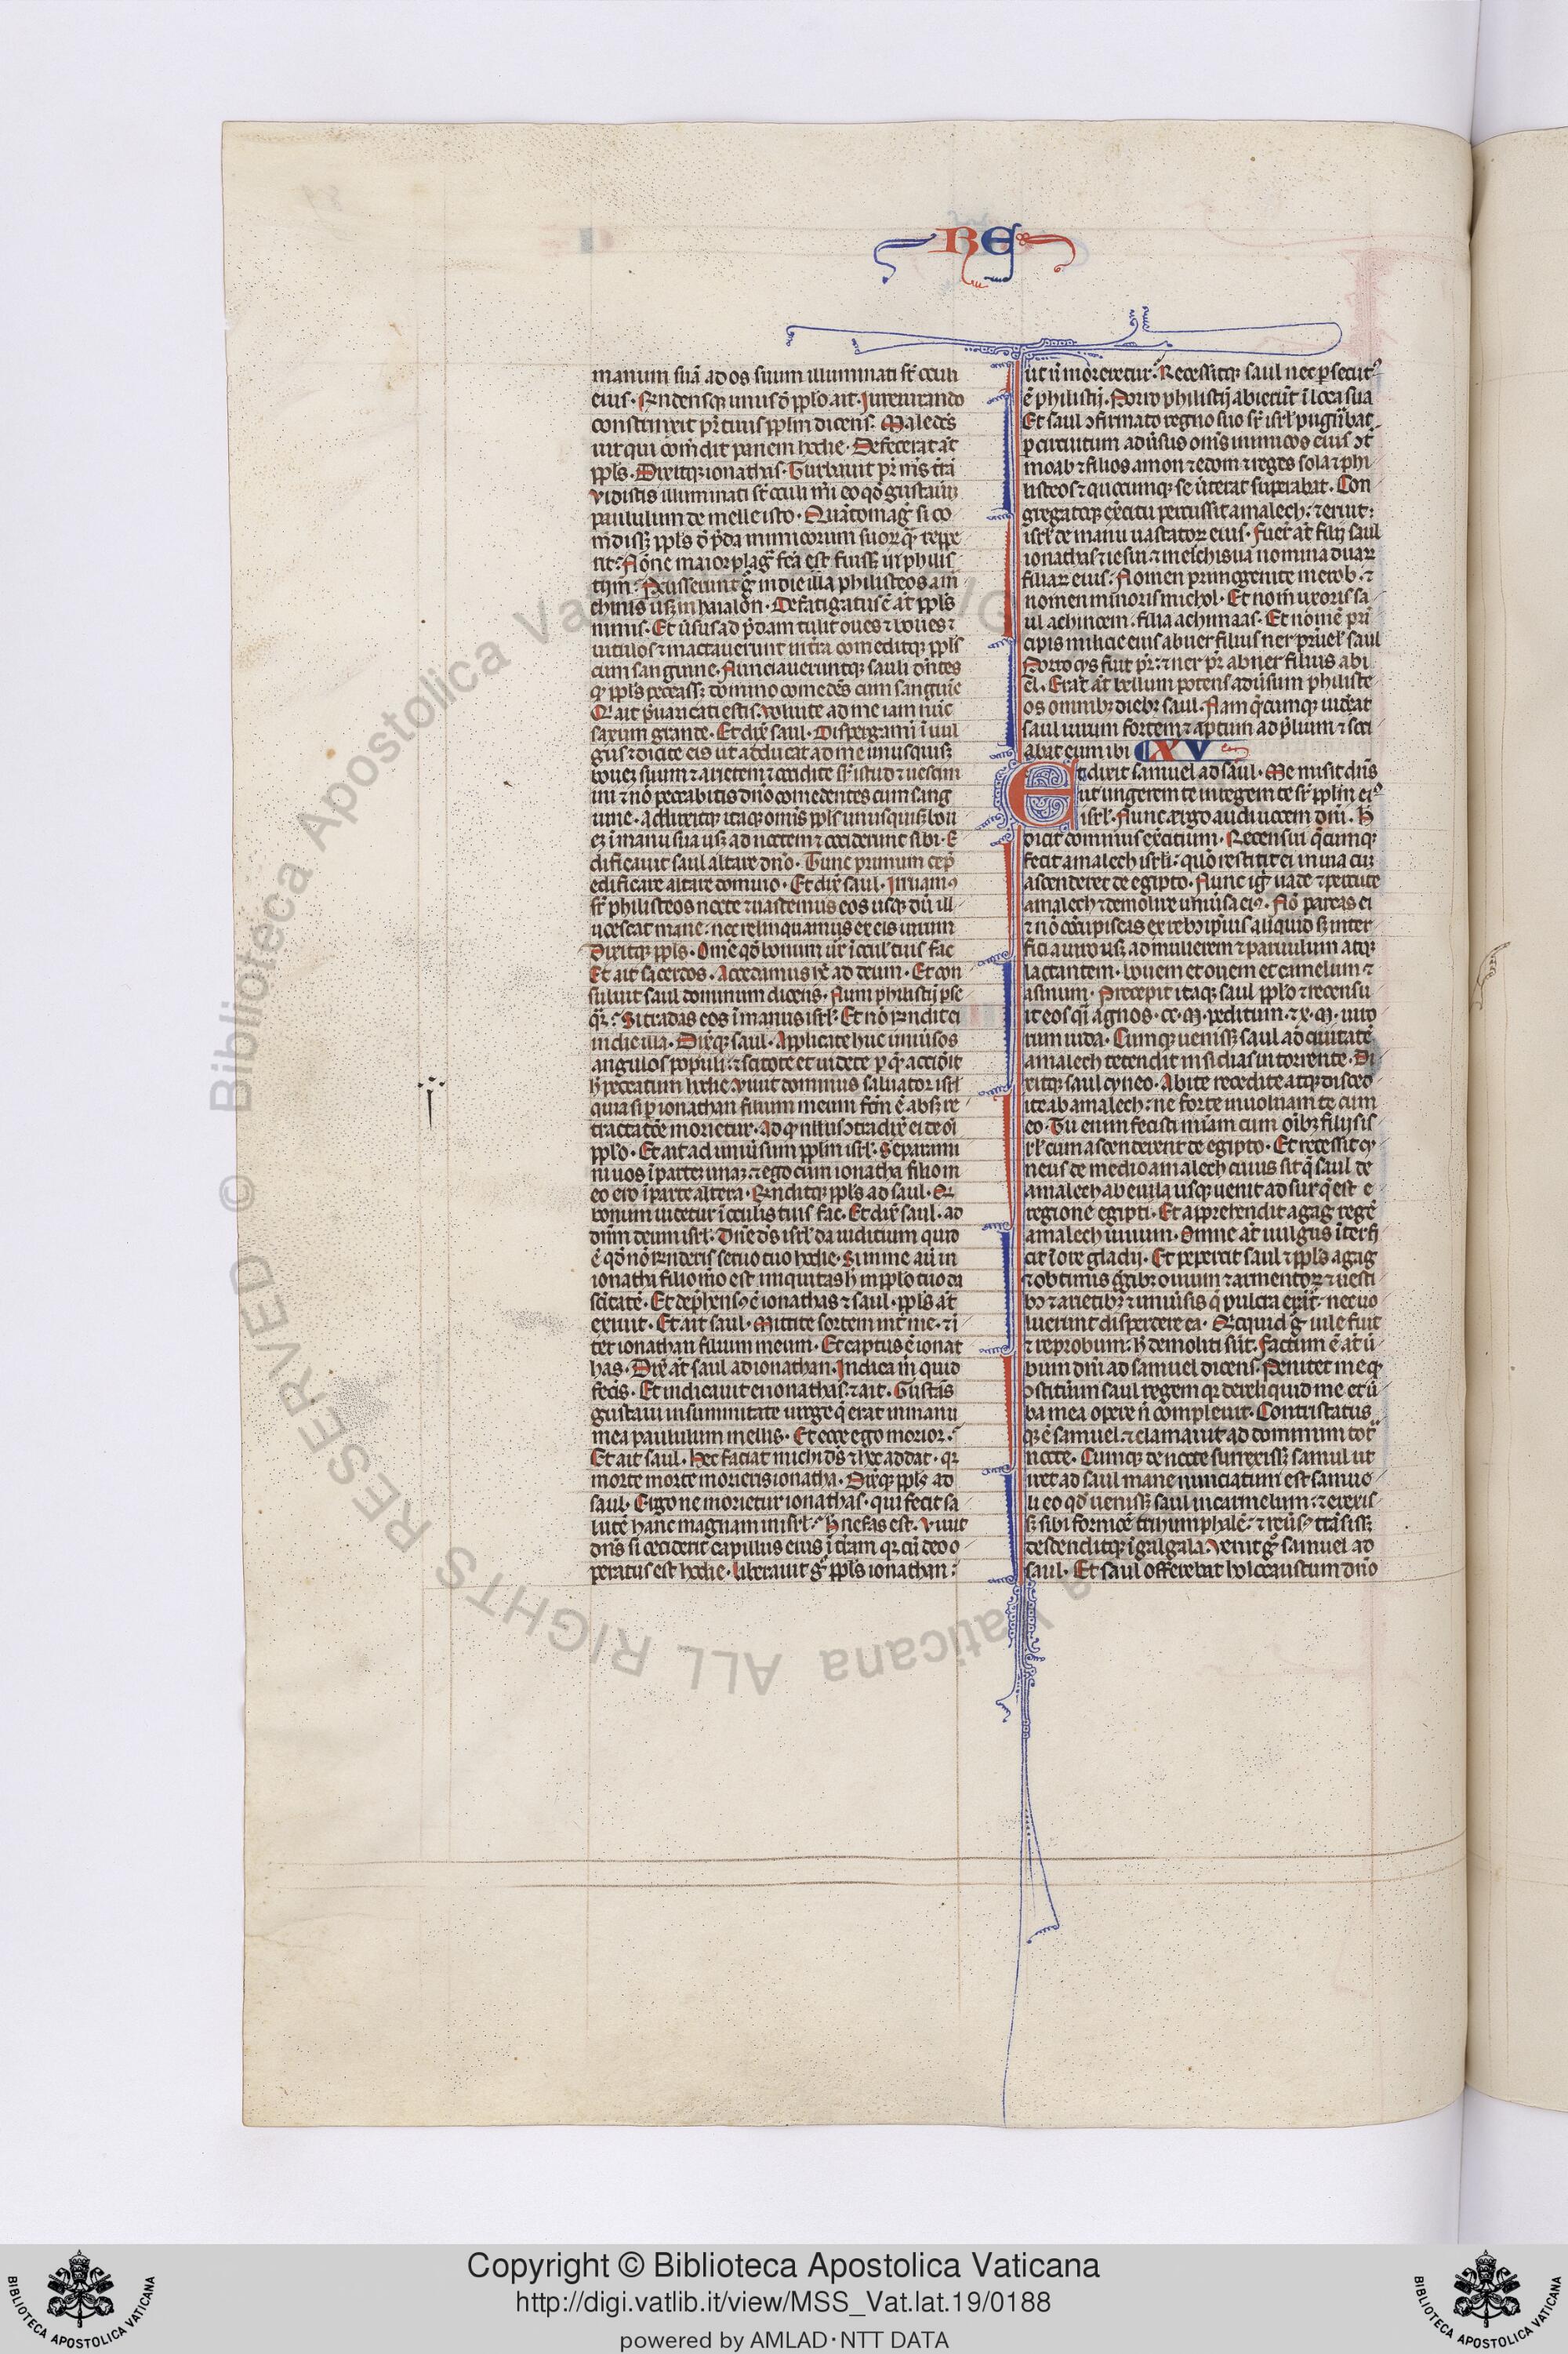 RE
manum suā ad os suum illuminati sūt oculi
eius. R̄ndensq̄ unus d̄ pplo ait. Jureiurando
constrinxit pr̄ tuus pplm dicens. Maledc̄s
uir qui com̄dit panem hodie. Defecerat aūt
ppls. Dixitq̄ ionathas. Turbauit pr̄ m̄s t̄rā
vidistis illuminati sūt oculi m̄i eo qd̄ gustaui
paululum de melle isto. Quātomaḡ si co
m̄disȝ ppls d̄ p̄da inimicorum suoꝝ q̄ reppe
rit. Nōne maior plaga fc̄a est fuissȝ in philis
tijm. Percusserunt g̊ in die illa philisteos a m̄
chmis usȝ in haialon. Defatigatus ē aūt ppls
nimis. Et ūsus ad p̄dam tulit oues ⁊ boues ⁊
uitulos ⁊ mactauerunt in t̄ra comeditq̄ ppls
cum sanguine. Nunciaueruntq̄ sauli dn̄tes
qȝ ppls peccassȝ domino comedēs cum sanguīe
Q̄ ait p̄uaricati estis. voluite ad me iam nūc
saxum grande. Et dix̄ saul. Dispergimī ī uul
gus ⁊ dicite eis ut adducat ad me unusquisȝ
bouē suum ⁊ arietem ⁊ occidite sr̄ istud ⁊ uescim
ini ⁊ nō peccabitis dn̄o comedentes cum sang
uine. Adduxitq̄ itaq̄ omīs ppls unusquisȝ bou
eȝ ī manu sua usȝ ad noctem ⁊ occiderunt sibi. E
dificauit saul altare dn̄o. Tunc primum cep̄
edificare altare domino. Et dix̄ saul. Irruamꝰ
sr̄ philisteos nocte ⁊ uastemus eos usq̄ dū ill
ucescat mane. nec relinquamus ex eis uirum
Dixitq̄ ppls. Om̄e qd̄ bonum ur̄ ī oculꝰ tuis fac
Et ait sacerdos. Accedamus hc̄ ad deum. Et con
suluit saul dominum dicens. Num philistij pse
q̄r. Si trades eos ī manus isrl̄. Et nō r̄ndit ei
in die illa. Dix̄q̄ saul. Applicate huc uniūsos
angulos populi. ⁊ scitote et uidete p q̄ acciđit
h̄ peccatum hodie. viuit dominus saluator isrl̄
quia si p ionathan filium meum fc̄m ē absȝ re
tractatōe morietur. Ad qȝ nullus ↄtradix̄ ei de oī
pplo. Et ait ad uniūsum pplm isrl̄. Separami
ni uos ī parteȝ unaȝ. ⁊ ego cum ionatha filio m
eo ero ī parte altera. R̄nditq̄ ppls ad saul. Q̄
bonum uidetur ī oculis tuis fac. Et dix̄ saul. ad
dn̄m deum isrl̄. Dn̄e ds̄ isrl̄ da iuditium quid
ē qd̄ nō r̄nderis seruo tuo hodie. Si in me aū in
ionatha filio m̄o est iniquitas h̄ in pplo tuo da
sc̄itatē. Et dep̄hensꝰ ē ionathas ⁊ saul. ppls aūt
exiuit. Et ait saul. Mittite sortem int̄ me. ⁊ ī
ter ionathan filium meum. Et captus ē ionat
has. Dix̄ aūt saul ad ionathan. Indica m̄ quid
fecis. Et indicauit ei ionathas. ⁊ ait. Gustās
gustaui in summitate uirge q̄ erat in manu
mea paululum mellis. Et ecce ego morior.
Et ait saul. Hec faciat michi ds̄ ⁊ hec addat. qr
morte morte morieris ionatha. Dix̄q̄ ppls ad
saul. Ergo ne morietur ionathas. qui fecit sa
lutē hanc magnam in isrl̄. h̄ nefas est. viuit
dn̄s si ceciderit capillus eius ī t̄ram qr cū deo o
peratus est hodie. liberauit g̊ ppls ionathan.
ij
ut n̄ moreretur. Recessitq̄ saul nec p̱secutꝰ
ē philistij. Porro philistij abierūt ī loca sua
Et saul ↄfirmato regno suo sr̄ isrl̄ pugn̄bat
p̱ circuitum adūsus omīs inimicos eius ↄt
moab ⁊ filios amon ⁊ edom ⁊ reges sola ⁊ phi
listeos ⁊ quocumq̄ se ūterat superabat. Con
gregatoq̄ ex̄citu percussit amalech. ⁊ eruit.
isrl̄ de manu uastatoꝝ eius. Fuer̄t aūt filij saul
ionathas ⁊ iesui ⁊ melchisua nomina duaꝝ
filiaꝝ eius. Nomen primogenite merob. ⁊
nomen minoris michol. Et nom̄ uxoris sa
ul achinoem. filia achimaas. Et nomē pri
cipis milicie eius abner filius ner pruel̄ saul
Porro cys fuit pr̄. ⁊ ner pr̄ abner filius abi
el. Erat aūt bellum potens adūsum philiste
os omnibȝ diebȝ saul. Nam q̄cumq̄ uid̄at
saul uirum fortem ⁊ aptum ad p̄lium ⁊ soci
abat eum ibi XV
Et dixit samuel ad saul. Me misit dn̄s
ut ungerem te in regem te sr̄ pplm eiꝰ
isrl̄. Nunc ergo audi uocem dn̄i. H̄
dicit dominus ex̄cituum. Recensui q̄cumq̄
fecit amalech isrl̄. quō restitit ei in uia cū
ascenderet de egipto. Nunc ig̊ uade ⁊ percute
amalech ⁊ demolire uniūsa eiꝰ. Nō parcas ei
⁊ nō cōcupiscas ex rebȝ ip̄ius aliquid sȝ inter
fici a uiro usȝ ad mulierem ⁊ paruulum atq̄
lactantem. bouem et ouem et camelum ⁊
asinum. Precepit itaq̄ saul pplo ⁊ recensu
it eos qī agnos. cc. M. peditum. ⁊ x. M. uiro
rum iuda. Cumq̄ uenissȝ saul ad ciuitatē
amalech tetendit insidias in torrente. Di
xitq̄ saul cyneo. Abite recedite atq̄ disced
ite ab amalech. ne forte inuoluam te cum
eo. Tu enim fecisti mīam cum oībȝ filijs is
rl̄ cum ascenderent de egipto. Et recessit cy
neus de medio amalech cuius sit q̄ saul de
amalech ab euila usq̄ uenit ad sur q̄ est e
regione egipti. Et apprehendit agag regē
amalech uiuum. Omne aūt uulgus īterfe
cit ī ore gladij. Et pepercit saul ⁊ ppls agag
⁊ obtimis g̊gibȝ ouium ⁊ armentoꝝ ⁊ uesti
bȝ ⁊ arietibȝ ⁊ uniūsis q̄ pulcra erāt. nec uo
luerunt disperdere ea. Q̄cquid g̊ uile fuit
⁊ reprobum. h̄ demoliti sūt. Factum ē aūt ū
bum dn̄i ad samuel dicens. Penitet me qȝ
ↄstituim saul regem qr dereliquid me et ū
ba mea opere n̄ compleuit. Contristatus
q̄ ē samuel. ⁊ clamauit ad dominum tot
nocte. Cumq̄ de nocte surrexissȝ samul ut
iret ad saul mane nunciatum est samue
li eo qd̄ uenissȝ saul in carmelum. ⁊ erexis
sȝ sibi fornicē trihumphalē. ⁊ reūsꝰ trāsissȝ
descenditq̄ ī galgala. Venit g̊ samuel ad
saul. Et saul offerebat holocaustum dn̄o
© Biblioteca Apostolica Vaticana ALL RIGHTS RESERVED
Copyright © Biblioteca Apostolica Vaticana
http://digi.vatlib.it/view/MSS_Vat.lat.19/0188
powered by AMLAD·NTT DATA
BIBLIOTECA APOSTOLICA VATICANA
BIBLIOTECA APOSTOLICA VATICANA